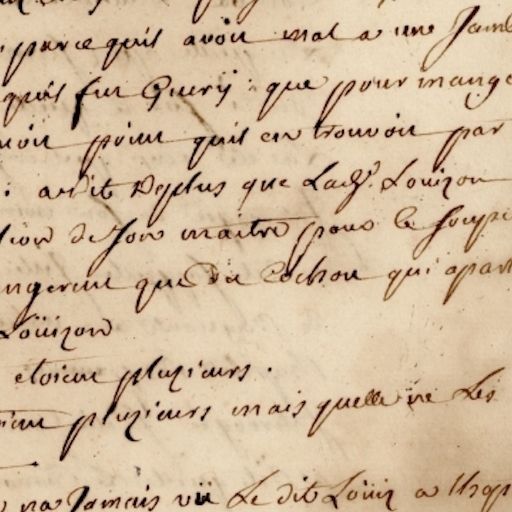 parcequil avoit mal a une Jamb
quil fut Guery : que pour mange
point quil en trouvoit par
: a dit Deplus que Ladt. Loüizon
tion de son maitre pour le soupe
ngerent que du Cochon qui apart
Loüizon
etoient plusieurs .
plusieurs mais quelle ne Les
na Jamais vü Le dit Loüis a